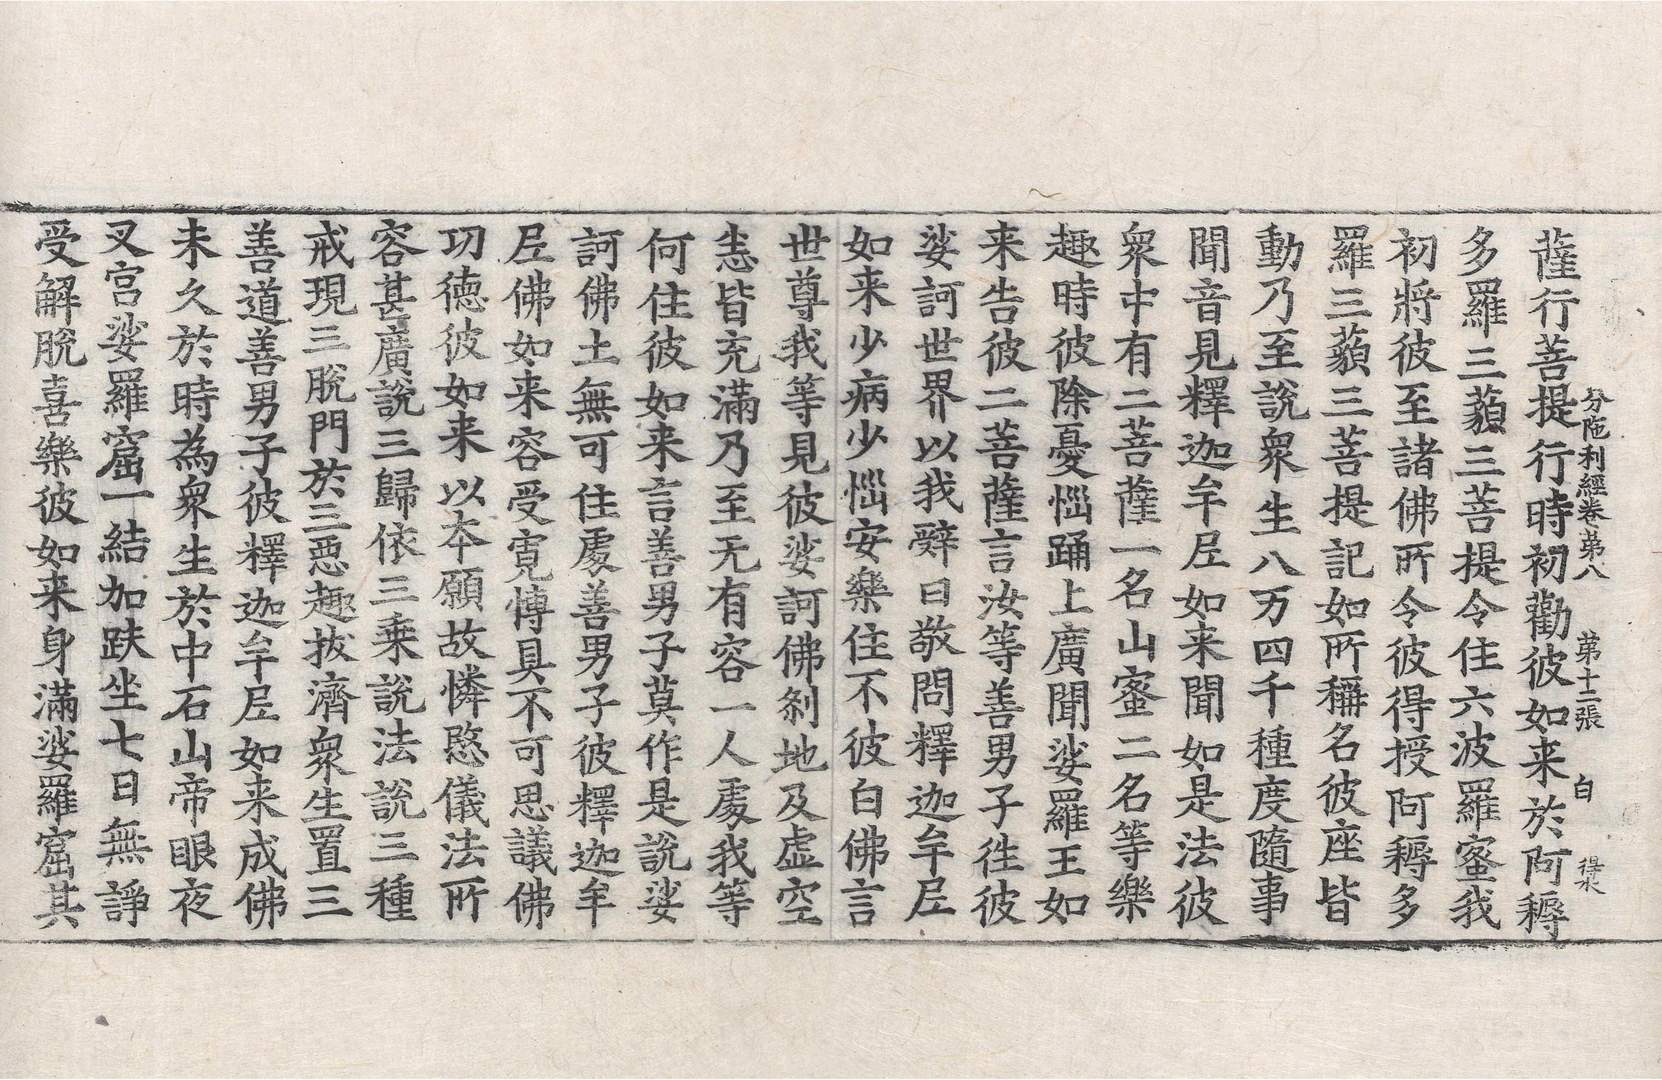 分陁利經卷第八　第十二張　白　得水
薩行菩提行時初勸彼如来於阿耨
多羅三藐三菩提令住六波羅蜜我
初將彼至諸佛所令彼得授阿耨多
羅三藐三菩提記如所稱名彼座皆
動乃至說衆生八万四千種度隨事
聞音見釋迦牟尼如来聞如是法彼
衆中有二菩薩一名山蜜二名等樂
趣時彼除憂惱踊上廣聞娑羅王如
来告彼二菩薩言汝等善男子徃彼
娑訶世界以我辝曰敬問釋迦牟尼
如来少病少惱安樂住不彼白佛言
世尊我等見彼娑訶佛剎地及虛空
悉皆充滿乃至无有容一人處我等
何住彼如来言善男子莫作是說娑
訶佛土無可住處善男子彼釋迦牟
尼佛如来容受寬博具不可思議佛
功德彼如来以本願故憐愍儀法所
容甚廣說三歸依三乘說法說三種
戒現三脫門於三惡趣拔濟衆生置三
善道善男子彼釋迦牟尼如来成佛
未久於時為衆生於中石山帝眼夜
叉宮娑羅窟一結加趺坐七日無諍
受解脫喜樂彼如来身滿娑羅窟其